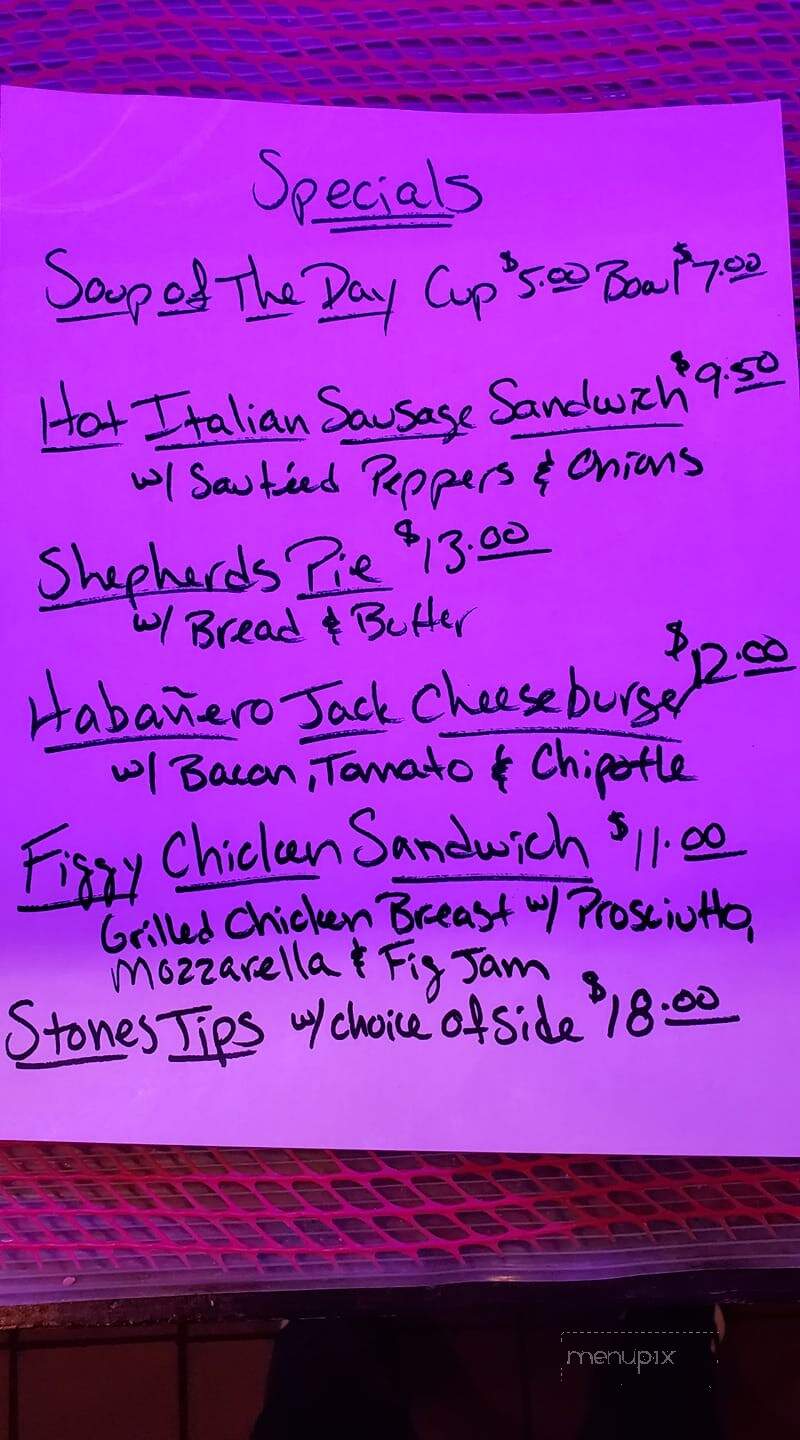 Specials
Soup of The Day Cup $5.00 Bowl $7.00
Hot Italian Sausage Sandwich $9.50
w/ Sautéed Peppers & Onions
Shepherds Pie $13.00
w/ Bread & Butter
Habañero Jack Cheeseburger $12.00
w/ Bacon, Tomato & Chipotle
Figgy Chicken Sandwich $11.00
Grilled Chicken Breast w/ Prosciutto,
Mozzarella & Fig Jam
Stones Tips w/ choice of Side $18.00
menupix